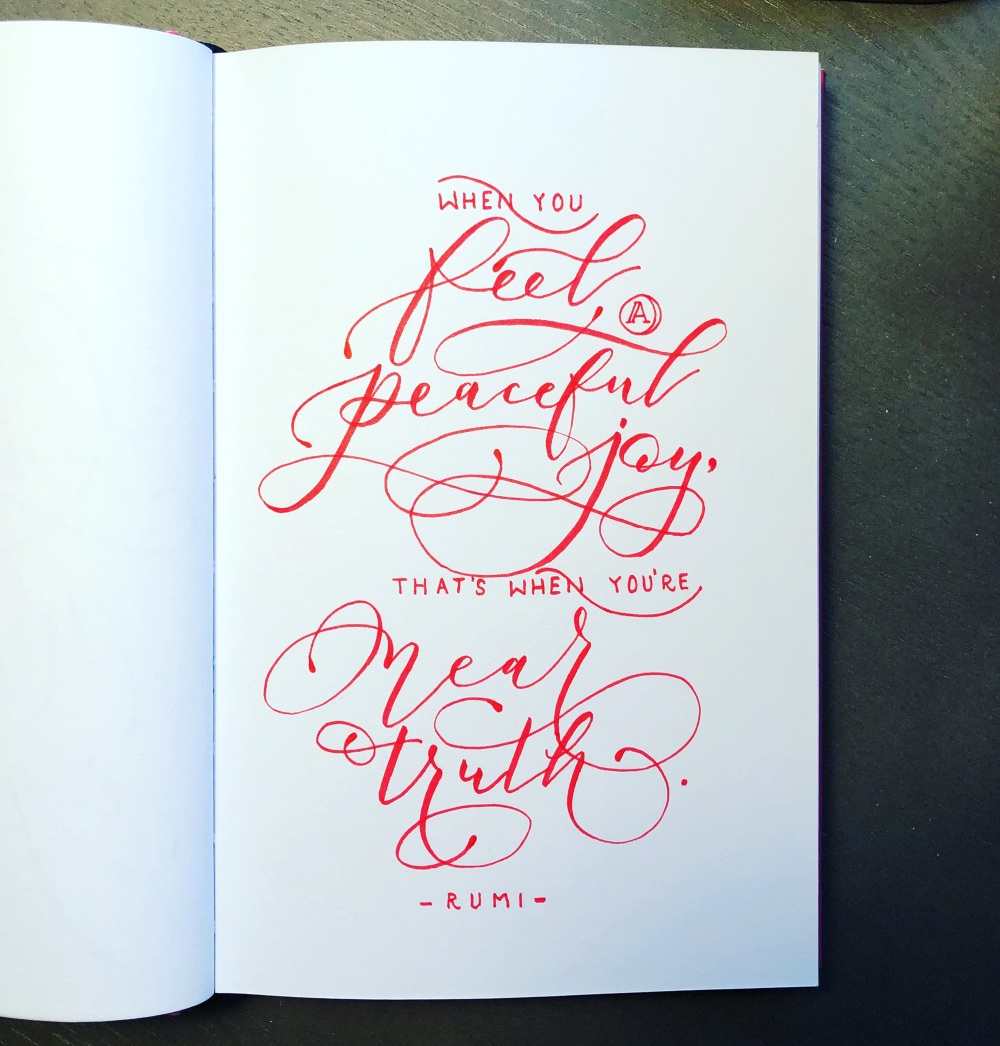 WHEN YOU
feel A
peaceful
joy,
THAT'S WHEN YOU'RE
near
truth.
-RUMI-